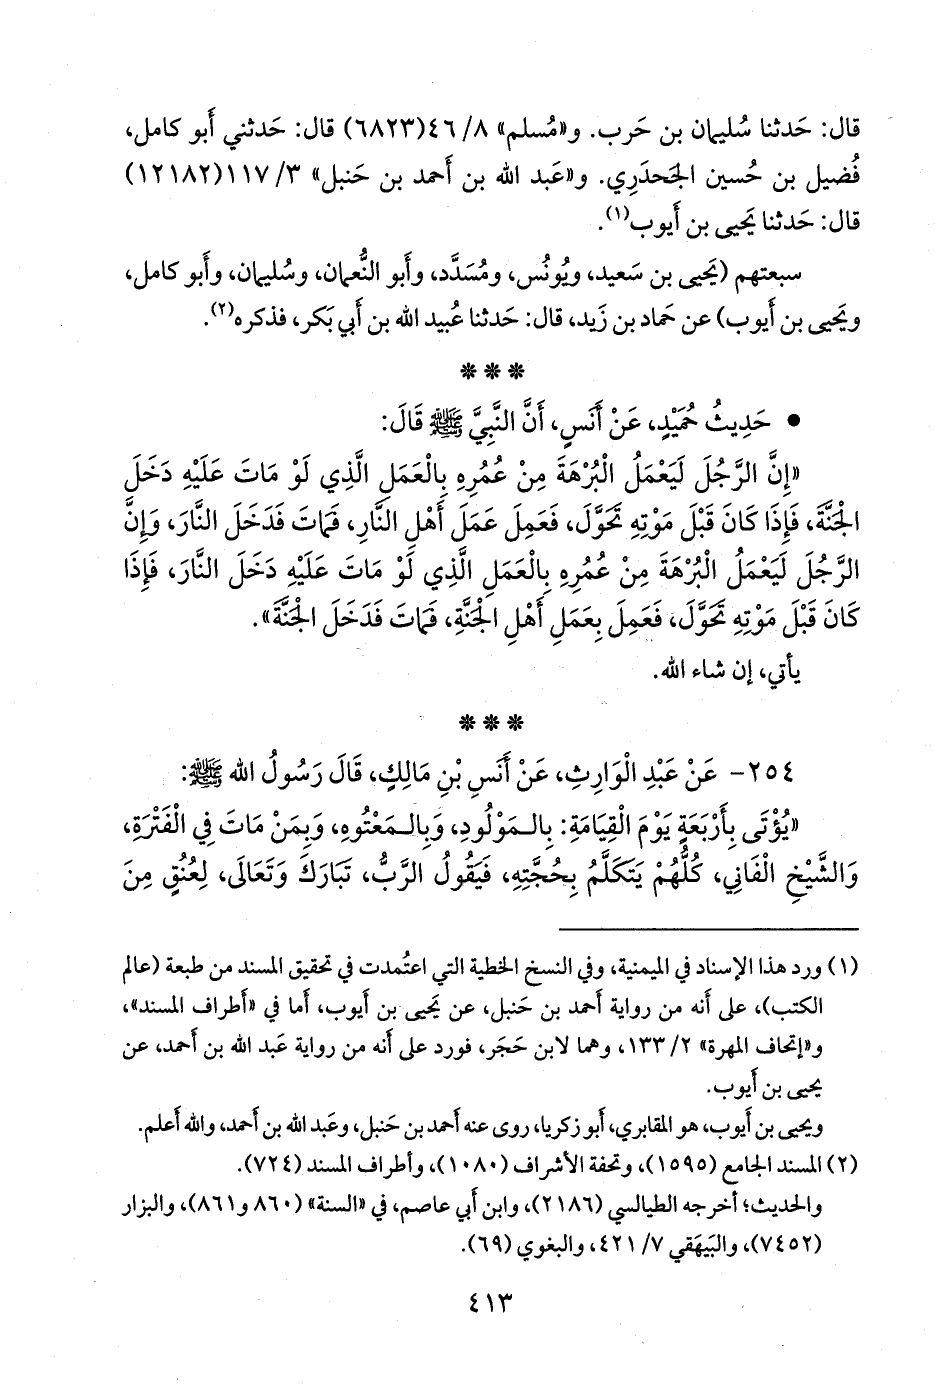 قال: حَدثنا سُليمان بن حَرب. و«مُسلم» ٨/ ٤٦(٦٨٢٣) قال: حَدثني أَبو كامل،
فُضيل بن حُسين الجَحدَري. و«عَبد الله بن أَحمد بن حَنبل» ٣/ ١١٧(١٢١٨٢)
قال: حَدثنا يَحيى بن أَيوب(١).
سبعتهم (يَحيى بن سَعيد، ويُونُس، ومُسَدَّد، وأَبو النُّعمان، وسُليمان، وأَبو كامل،
ويَحيى بن أَيوب) عن حَماد بن زَيد، قال: حَدثنا عُبيد الله بن أَبي بَكر، فذكره(٢).
***
• حَدِيثُ حُمَيْدٍ، عَنْ أَنَسٍ، أَنَّ النَّبِيَّ ﷺ قَالَ:
«إِنَّ الرَّجُلَ لَيَعْمَلُ الْبُرْهَةَ مِنْ عُمُرِهِ بِالْعَمَلِ الَّذِي لَوْ مَاتَ عَلَيْهِ دَخَلَ
الجَنَّةَ، فَإِذَا كَانَ قَبْلَ مَوْتِهِ تَحَوَّلَ، فَعَمِلَ عَمَلَ أَهْلِ النَّارِ، فَمَاتَ فَدَخَلَ النَّارَ، وَإِنَّ
الرَّجُلَ لَيَعْمَلُ الْبُرْهَةَ مِنْ عُمُرِهِ بِالْعَمَلِ الَّذِي لَوْ مَاتَ عَلَيْهِ دَخَلَ النَّارَ، فَإِذَا
كَانَ قَبْلَ مَوْتِهِ تَحَوَّلَ، فَعَمِلَ بِعَمَلِ أَهْلِ الجَنَّةِ، فَمَاتَ فَدَخَلَ الجَنَّةَ».
يأتي، إن شاء الله.
***
٢٥٤- عَنْ عَبْدِ الْوَارِثِ، عَنْ أَنَسِ بْنِ مَالِكٍ، قَالَ رَسُولُ الله ﷺ:
«يُؤْتَى بِأَرْبَعَةٍ يَوْمَ الْقِيَامَةِ: بِالـمَوْلُودِ، وَبِالـمَعْتُوهِ، وَبِمَنْ مَاتَ فِي الْفَتْرَةِ،
وَالشَّيْخِ الْفَانِي، كُلُّهُمْ يَتَكَلَّمُ بِحُجَّتِهِ، فَيَقُولُ الرَّبُّ، تَبَارَكَ وَتَعَالَى، لِعُنُقٍ مِنَ
(١) ورد هذا الإسناد في الميمنية، وفي النسخ الخطية التي اعتُمدت في تحقيق المسند من طبعة (عالم
الكتب)، على أنه من رواية أحمد بن حَنبل، عن يَحيى بن أَيوب، أما في «أطراف المسند»،
و«إتحاف المهرة» ٢/ ١٣٣، وهما لابن حَجَر، فورد على أنه من رواية عَبد الله بن أحمد، عن
يحيى بن أَيوب.
ويحيى بن أَيوب، هو المقابري، أَبو زكريا، روى عنه أحمد بن حَنبل، وعَبد الله بن أحمد، والله أعلم.
(٢) المسند الجامع (١٥٩٥)، وتحفة الأشراف (١٠٨٠)، وأطراف المسند (٧٢٤).
والحديث؛ أخرجه الطيالسي (٢١٨٦)، وابن أبي عاصم، في «السنة» (٨٦٠ و٨٦١)، والبزار
(٧٤٥٢)، والبَيهَقي ٧/ ٤٢١، والبغوي (٦٩).
٤١٣